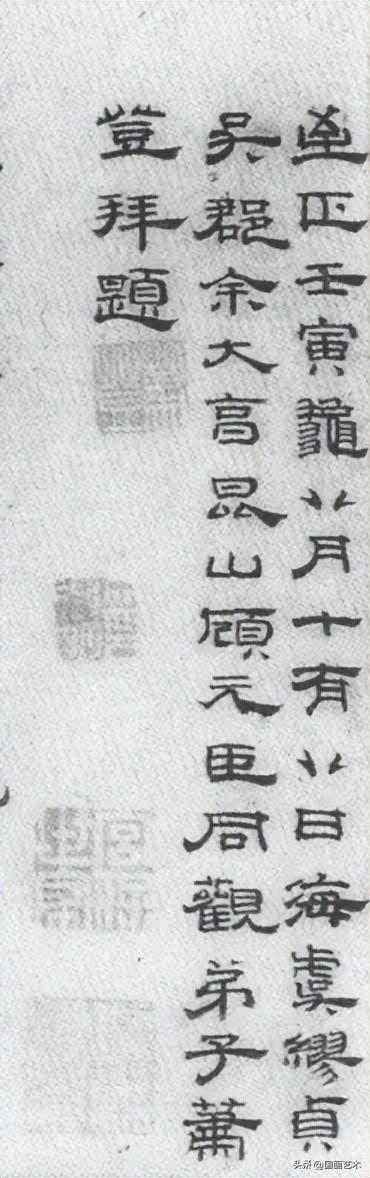 至正壬寅龝八月十有八日海虞繆貞
吳郡余大亯昆山顧元臣同觀弟子蕭
登拜題
头条 @国画艺术